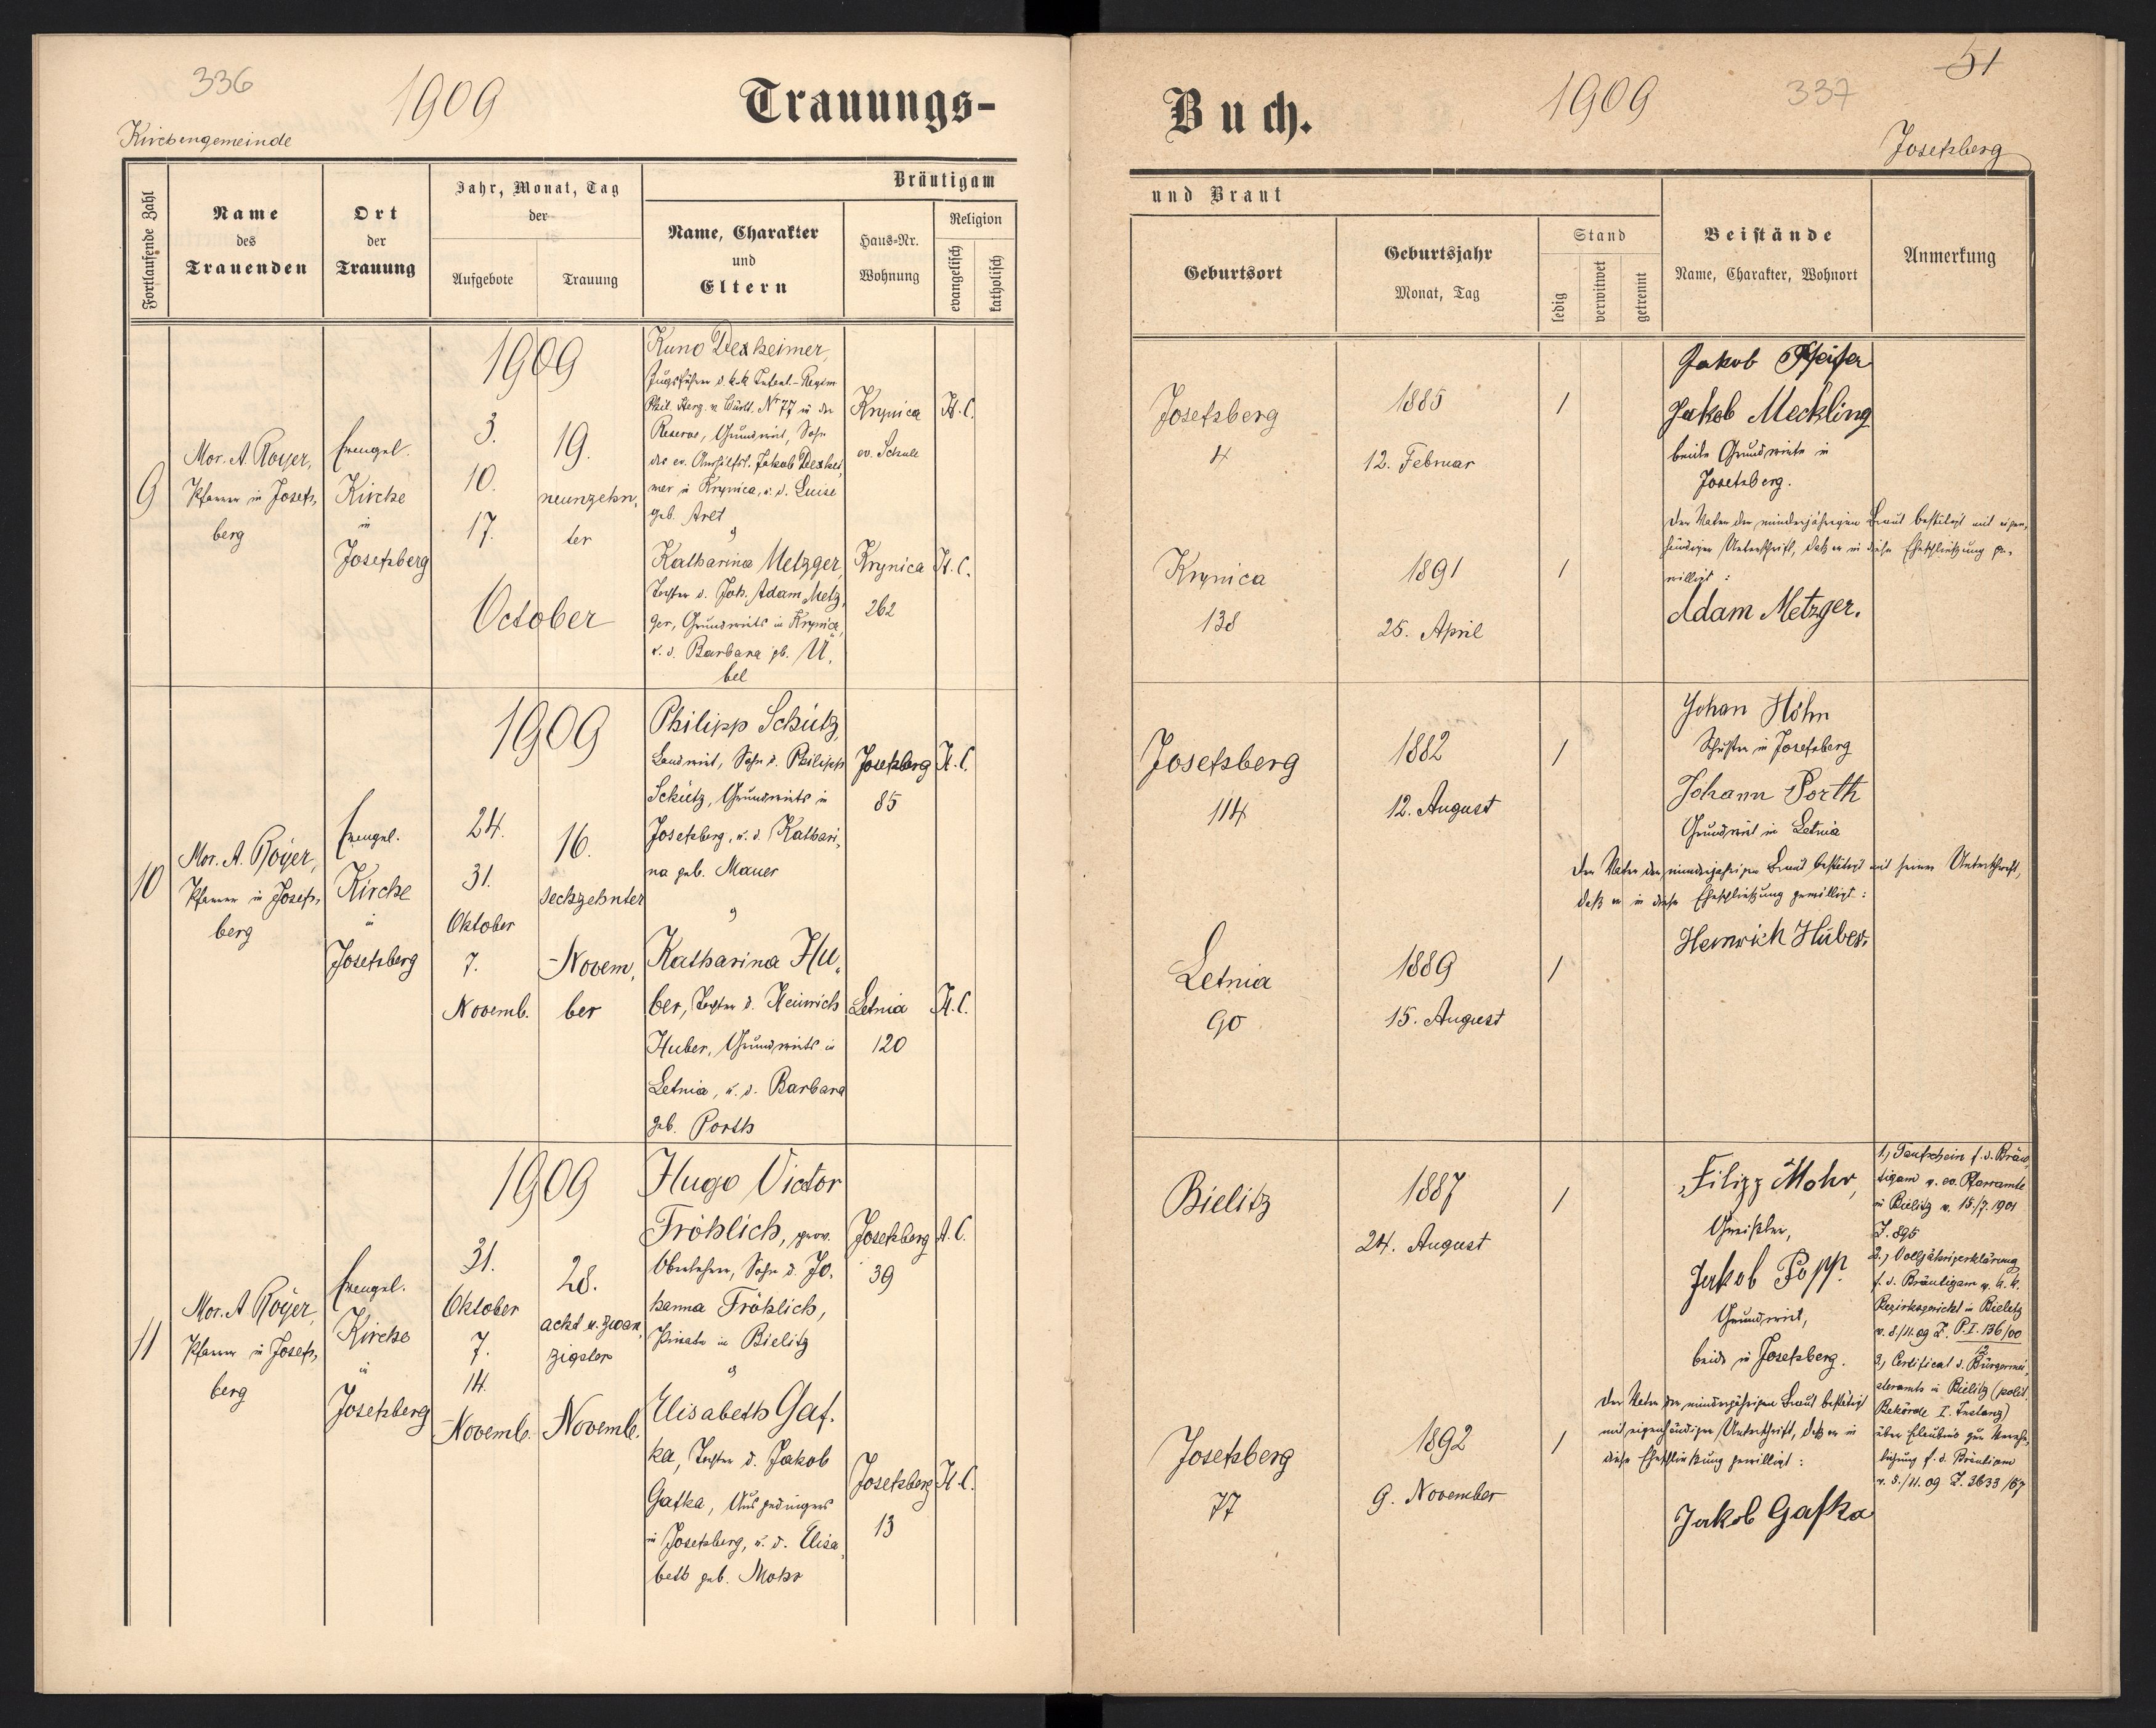 336
1909
Trauungs-
Kirchengemeinde
Fortlaufende Zahl
Name
des
Trauenden
Ort
der
Trauung
Jahr, Monat, Tag
der
Aufgebote
Trauung
Bräutigam
Name, Charakter
und
Eltern
Haus-Nr.
Wohnung
Religion
evangelisch
katholisch
9
Mor. A. Royer,
Pfarrer in Josefs,
berg
Evangel.
Kirche
in
Josefsberg
1909
3.
10.
17.
19.
neunzehn,
ter
October
Kuno Dexheimer,
Zugsführer d. k. k. Infant.-Regim
Phil. Herz. v. Württ. Nr 77 in der
Reserve, Grundwirt, Sohn
des ev. Aushilfsl. Jakob Dexhei,
mer in Krynica, u. d. Luise
geb. Aret
Krynica
ev. Schule
H.C.
Katharina Metzger,
Tochter d. Joh. Adam Metz,
ger, Grundwirts in Krynica,
u. d. Barbara gb. Ü,
bel
Krynica
262
H.C.
10
Mor. A. Royer,
Pfarrer in Josefs,
berg
Evangel.
Kirche
in
Josefsberg
1909
24.
31.
Oktober
7.
Novemb.
16.
sechzehnter
Novem,
ber
Philipp Schütz,
Landwirt, Sohn d. Philipp
Schütz, Grundwirts in
Josefsberg, u. d. Kathari,
na geb. Mauer
Josefsberg
85
H.C.
Katharina Hu,
ber, Tochter d. Heinrich
Huber, Grundwirts in
Letnia, u. d. Barbara
geb. Porth
Letnia
120
H.C.
11
Mor. A Royer,
Pfarrer in Josefs,
berg
Evangel.
Kirche
in
Josefsberg
1909
31.
Oktober
7.
14.
Novemb.
28.
acht u. zwan,
zigster
Novemb.
Hugo Victor
Fröhlich, prov.
Oberlehrer, Sohn d. Jo,
hanna Fröhlich,
Private in Bielitz
Josefsberg
39
A.C.
Elisabeth Gaf,
ka, Tochter d. Jakob
Gafka, Ausgedingers
in Josefsberg, u. d. Elisa,
beth geb. Mohr
Josefsberg
13
H.C.
Buch.
1909
337
51
Josefsberg
und Braut
Geburtsort
Geburtsjahr
Monat, Tag
Stand
ledig
verwitwet
getrennt
Beistände
Name, Charakter, Wohnort
Anmerkung
Josefsberg
4
1885
12. Februar
1
Jakob Pfeifer
Jakob Meckling
beide Grundwirte in
Josefsberg.
Krynica
138
1891
25. April
1
Der Vater der minderjährigen Braut bestätigt mit eigen,
händiger Unterschrift, daß er in diese Eheschließung ge,
willigt:
Adam Metzger.
Josefsberg
114
1882
12. August
1
Johan Höhn
Schuster in Josefsberg
Johann Porth
Grundwirt in Letnia
Der Vater der minderjährigen Braut bestätigt mit seiner Unterschrift,
daß er in diese Eheschließung gewilligt:
Heinrich Huber.
Letnia
90
1889
15. August
1
Bielitz
1887
24. August
1
Filipp Mohr,
Greißler,
Jakob Popp
Grundwirt,
beide in Josefsberg.
Der Vater der minderjährigen Braut bestätigt
mit eigenhändiger Unterschrift, daß er in
diese Eheschließung gewilligt:
Jakob Gafka
Josefsberg
77
1892
9. November
1
1.) Taufschein f. d. Bräu,
tigam v. ev. Pfarramte
in Bielitz v. 15./7. 1901
Z. 895
2.) Volljährigerklärung
f. d. Bräutigam v. k. k.
Bezirksgericht in Bielitz
v. 8./11. 09 Z. P.I. 136/00
12
3.) Certificat d. Bürgermei,
steramts in Bielitz (polit.
Behörde I. Instanz)
über Erlaubnis zur Vereh,
lichung f. d. Bräutigam
v. 5./11. 09 Z. 3633/67